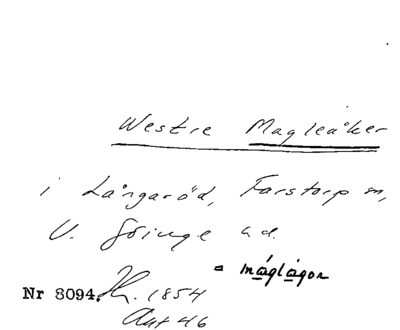 Westre Magleåker
i Långaröd, Farstorp sn,
V. Göinge hd.
= máglàgor
Nr 8094. 1854
Akt 46